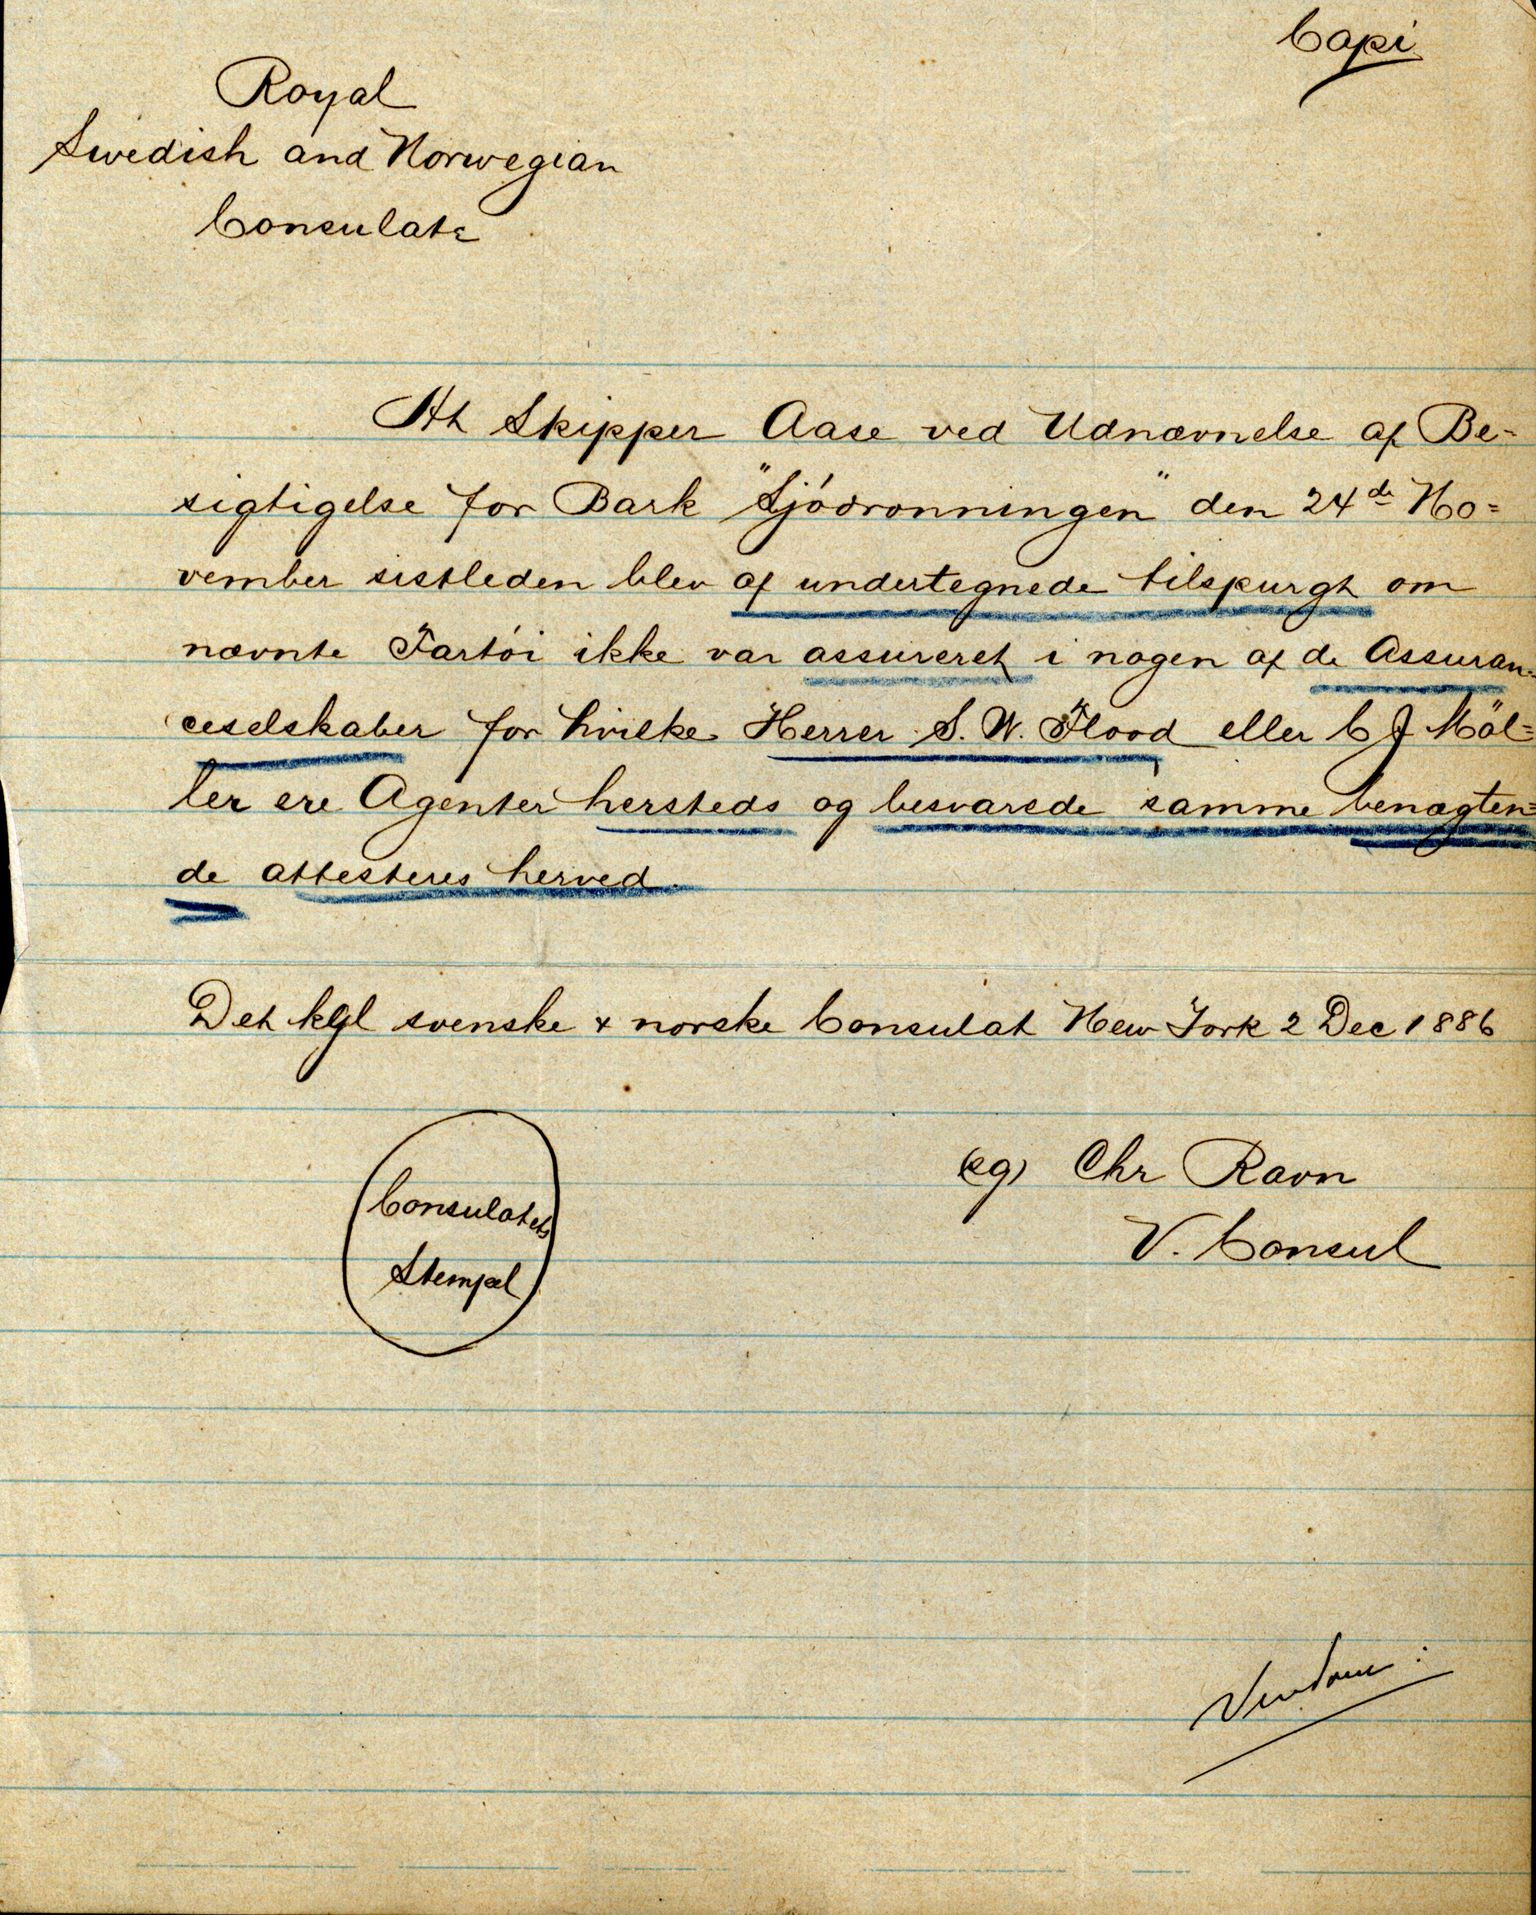 Copi
Royal
Swedish and Norwegian
Consulate
At Skipper Aase ved Udnævnelse af Be=
sigtigelse for Bark "Sjódronningen" den 24de No=
vember sistleden blev af undertegnede tilspurgt om
nævnte Fartói ikke var assureret i nogen af de Assuran=
ceselskaber for hvilke Herrer S. W. Flood eller C J Möl=
ler ere Agenter hersteds og besvarede samme benægten=
de attesteres herved.
Det kgl svenske & norske Consulat New York 2 Dec 1886
(eg) Chr Ravn
V. Consul
Consulatets
Stempel